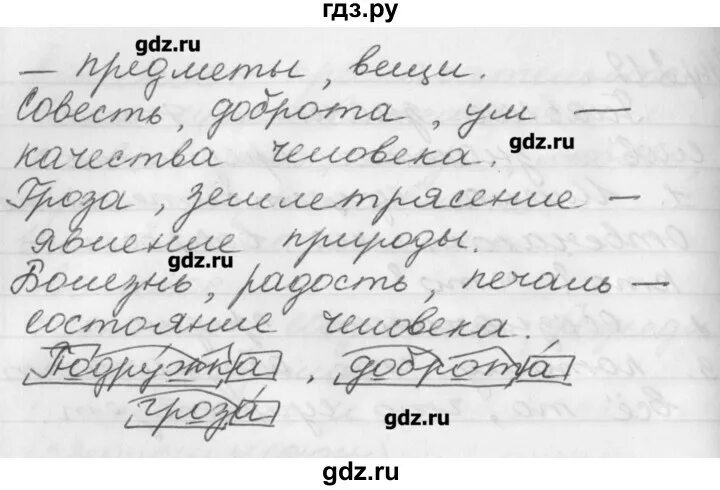 гдз.ру
gdz.ru
— предметы, вещи.
Совесть, доброта, ум —
gdz.ru
качества человека.
Гроза, землетрясение —
явление природы.
gdz.ru
Болезнь, радость, печаль —
состояние человека.
Подружка, доброта́
гроза́
gdz.ru
gdz.ru